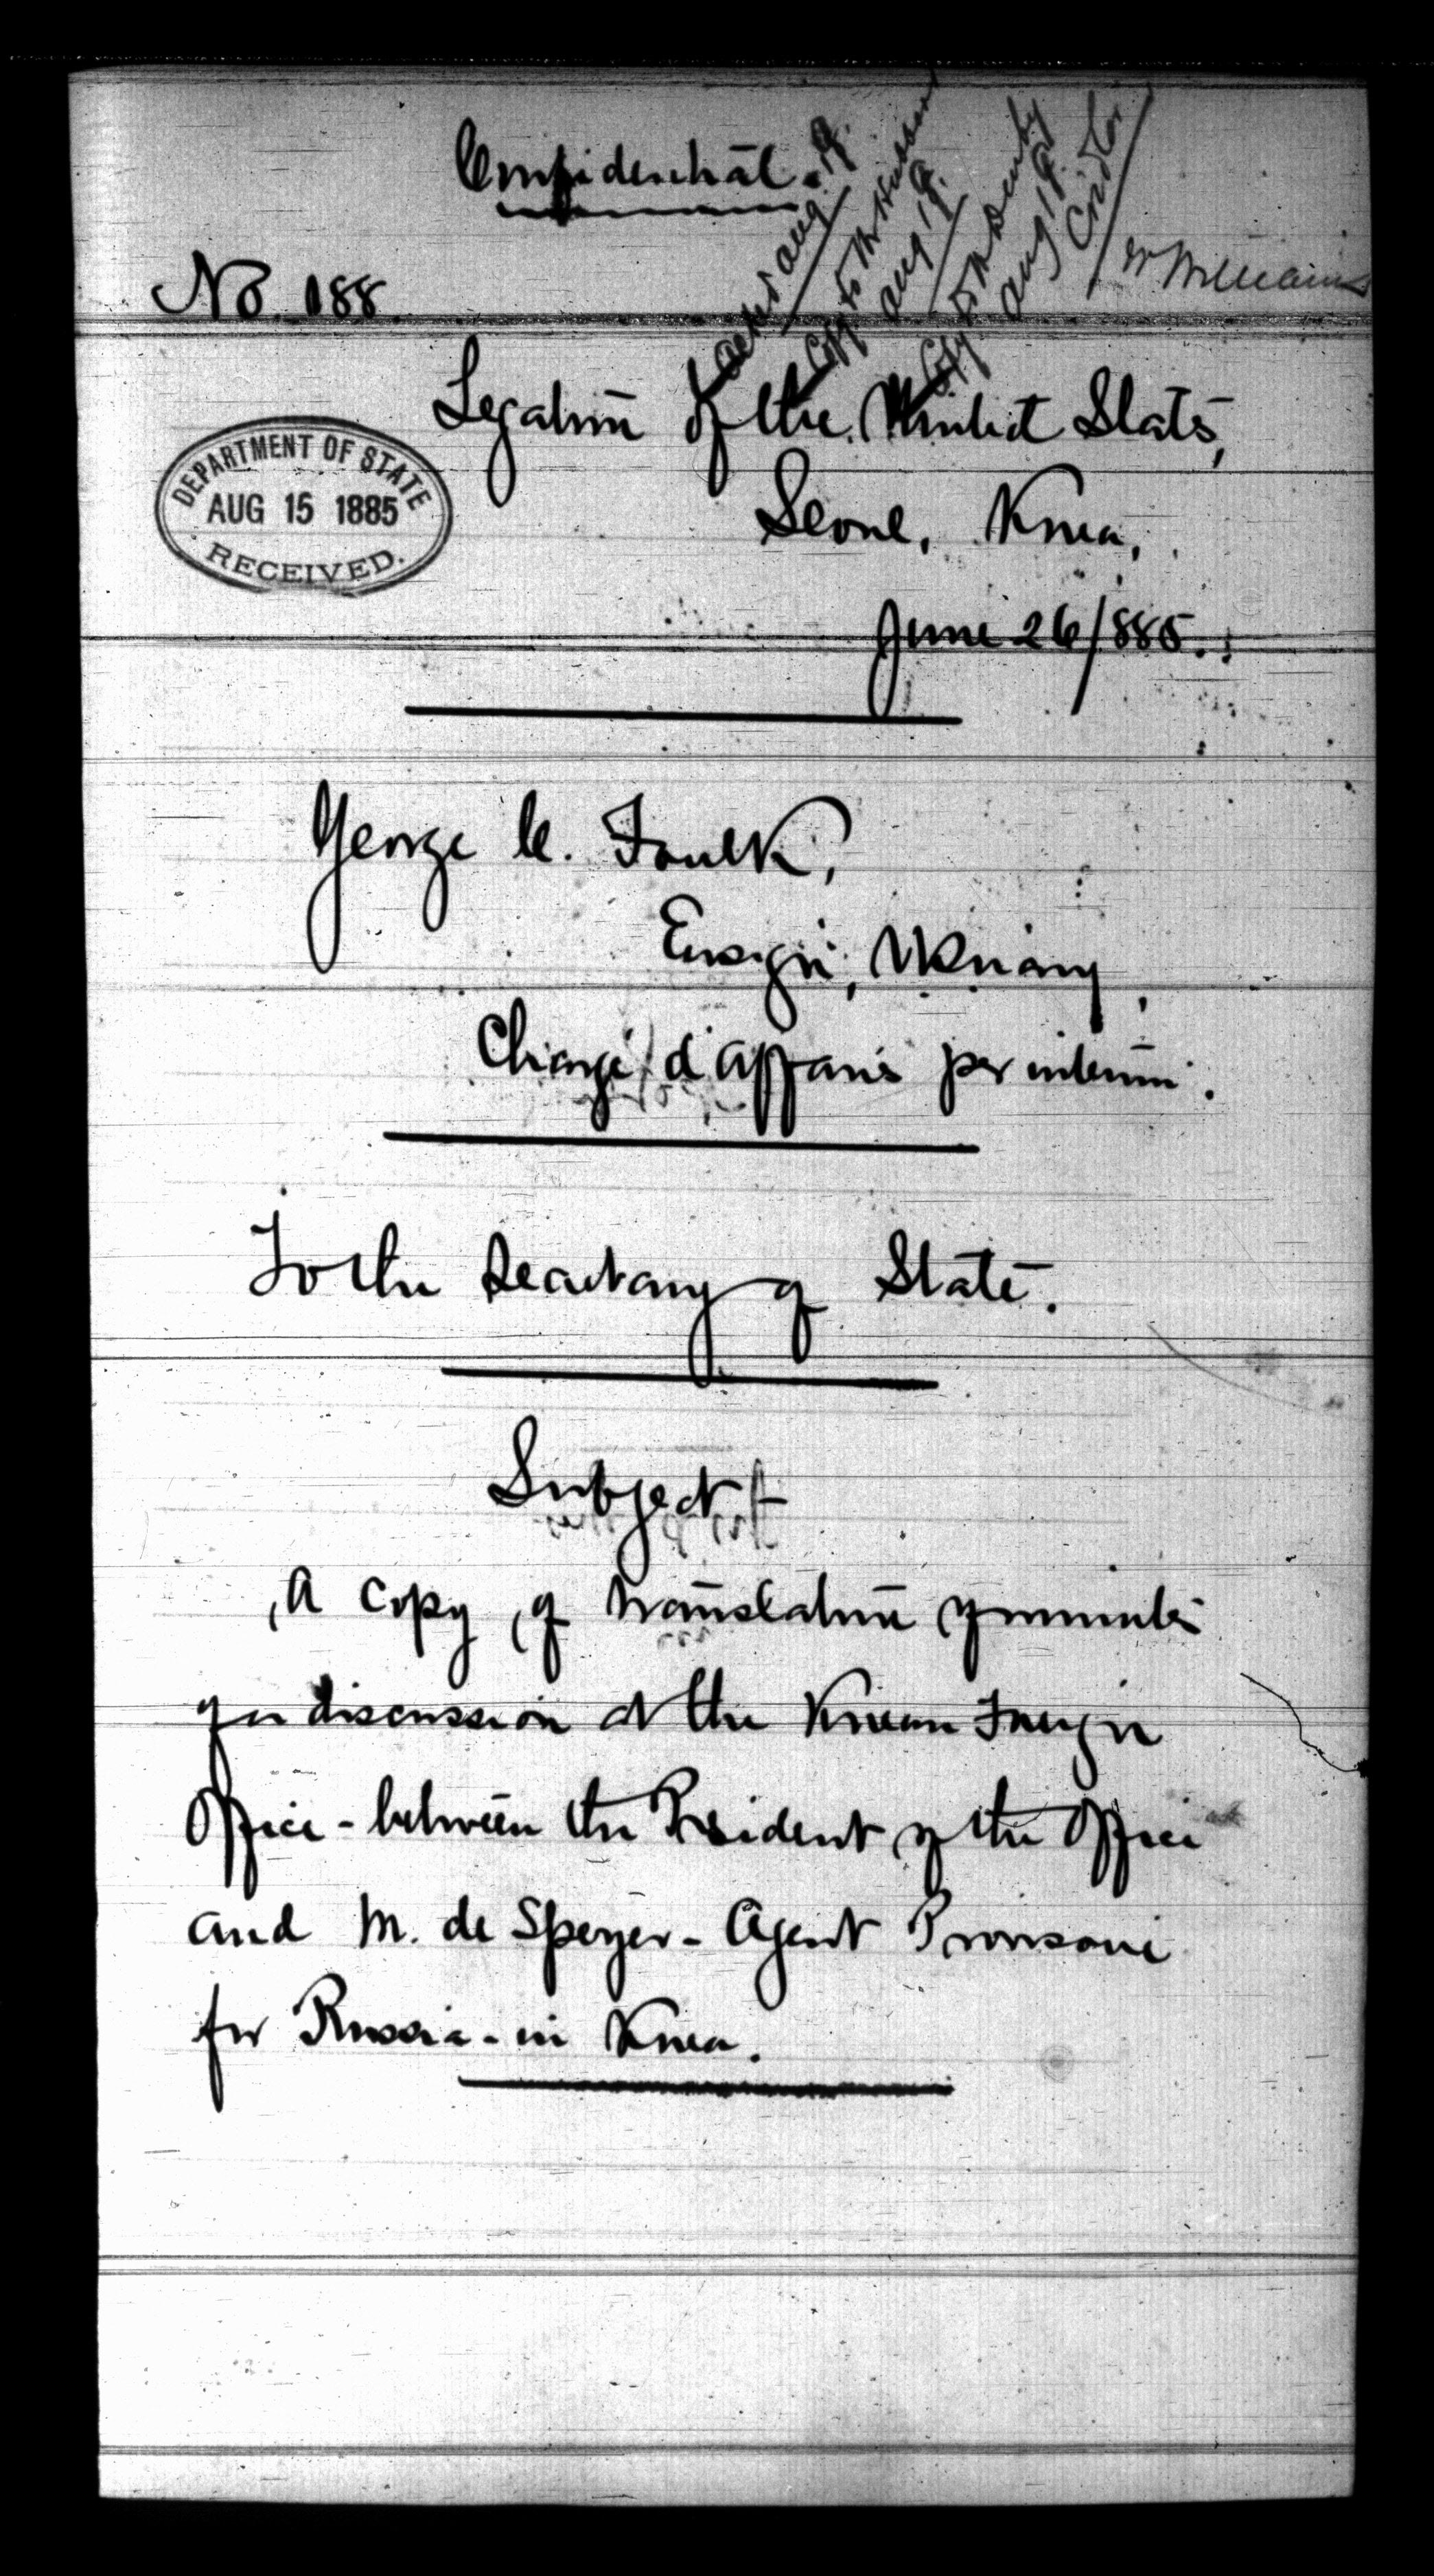 Confidential.
No. 188.
Ackd Aug 19.
Copy to Mr Hubbard
Aug 19.
Copy to Mr Denby
Aug 19.
Cridler
Mr Williams
Legation of the United States,
Seoul, Korea,
June 26/885.
DEPARTMENT OF STATE
AUG 15 1885
RECEIVED.
George C. Foulk,
Ensign, U.S. Navy,
Chargé d'affaires per interim.
To the Secretary of State.
Subject
A copy of translation of minutes
of a discussion at the Korean Foreign
Office - between the President of the Office
and M. de Speyer - Agent Provisoire
for Russia - in Korea.